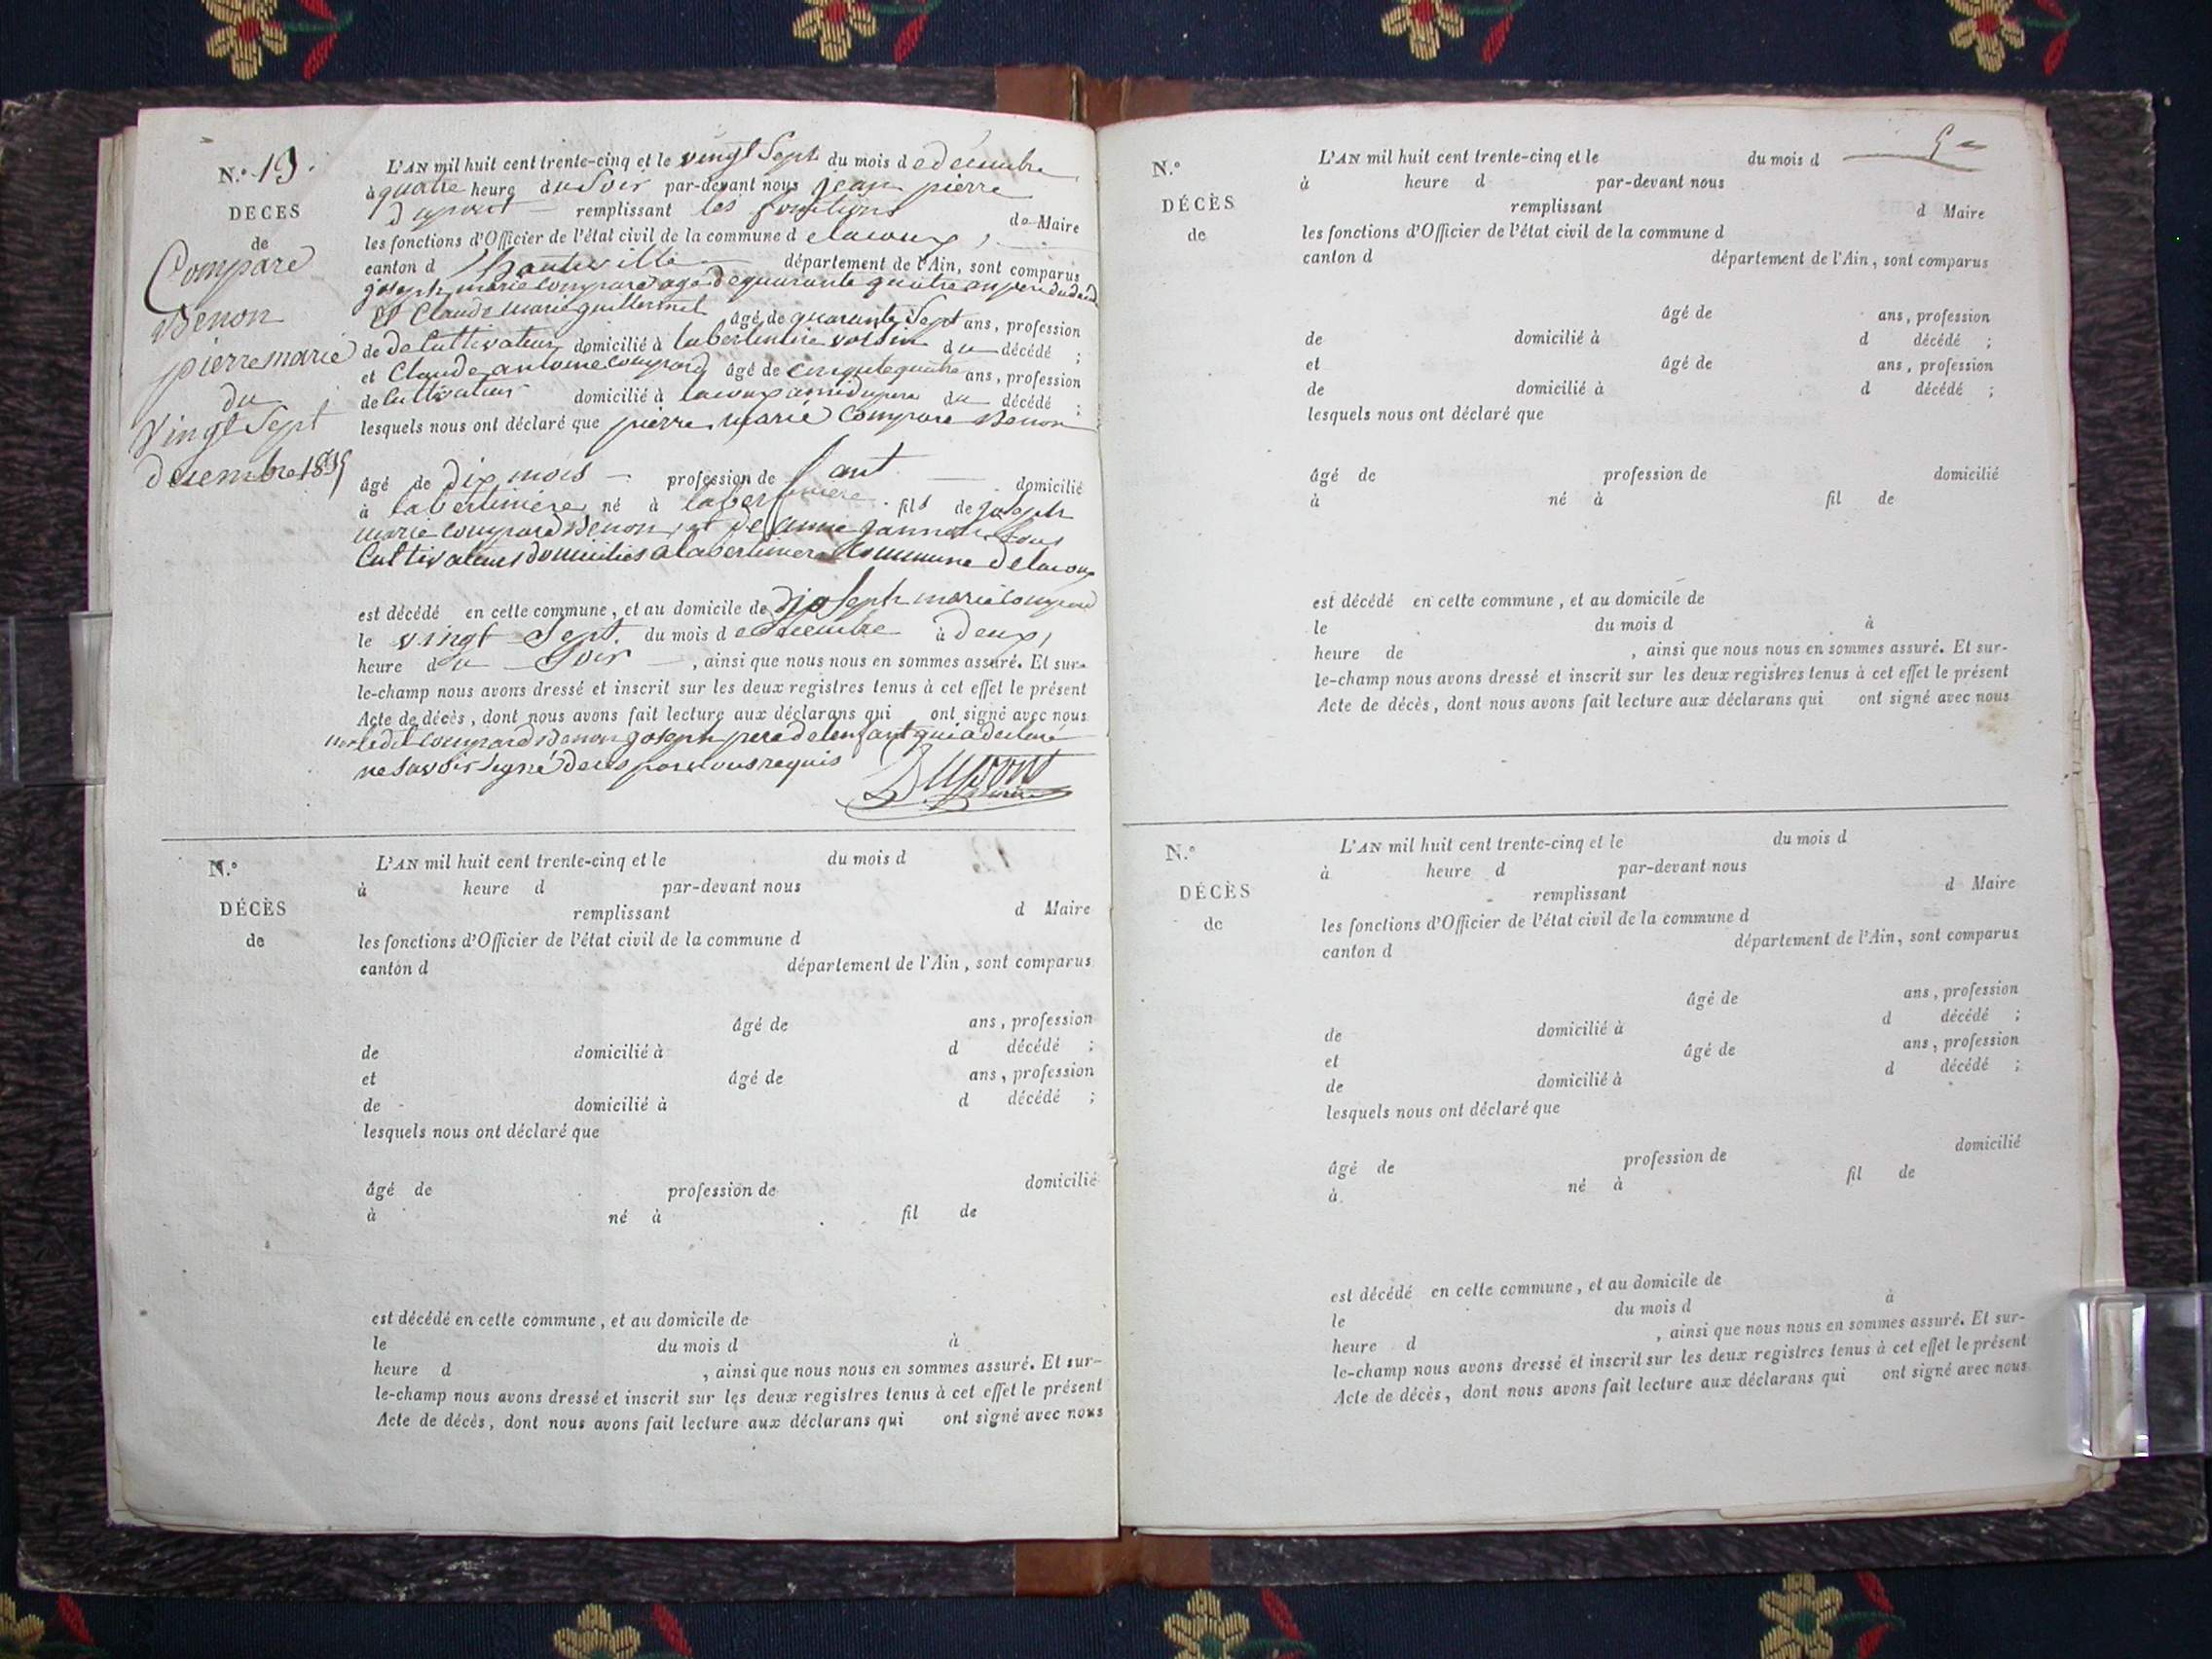 N.° 19.
DÉCÈS
de
Compare
Benon
pierre marie
du
Vingt Sept
decembre 1835
L'AN mil huit cent trente-cinq et le vingt Sept du mois d e decembre
à quatre heure du Soir par-devant nous jean pierre
dupont remplissant les fonctions de Maire
les fonctions d'Officier de l'état civil de la commune d elacoux,
canton d hauteville département de l'Ain, sont comparus
joseph marie compard agé de quarante quatre an
et Claude marie guillermet âgé de quarante Sept ans, profession
de de Cultivateur domicilié à labertinière voisin du décédé ;
et Claude antoine compard âgé de cinqute quatre ans, profession
de Cultivateur domicilié à lacoux ami du pere du décédé ;
lesquels nous ont déclaré que pierre marie Compare Benon
âgé de dix mois profession de domicilié
à labertinière né à labertinière fils de joseph
marie compard Benon, et de anne jannet tous
Cultivateurs domiciliés a labertiniere Commune de lacoux
est décédé en cette commune, et au domicile de joseph marie Compard
le vingt Sept. du mois d e decembre à deux,
heure du Soir, ainsi que nous nous en sommes assuré. Et sur-
le-champ nous avons dressé et inscrit sur les deux registres tenus à cet effet le présent
Acte de décès, dont nous avons fait lecture aux déclarans qui ont signé avec nous
non ledit compard Benon joseph pere de lenfant qui a declaré
ne savoir signé de ces par nous requis
Dupont
maire
N.°
DÉCÈS
de
L'AN mil huit cent trente-cinq et le du mois d
à heure d par-devant nous
remplissant d Maire
les fonctions d'Officier de l'état civil de la commune d
canton d département de l'Ain, sont comparus
âgé de ans, profession
de domicilié à d décédé ;
et âgé de ans, profession
de domicilié à d décédé ;
lesquels nous ont déclaré que
âgé de profession de domicilié
à né à fil de
est décédé en cette commune, et au domicile de
le du mois d à
heure d , ainsi que nous nous en sommes assuré. Et sur-
le-champ nous avons dressé et inscrit sur les deux registres tenus à cet effet le présent
Acte de décès, dont nous avons fait lecture aux déclarans qui ont signé avec nous
N.°
DÉCÈS
de
L'AN mil huit cent trente-cinq et le du mois d
à heure d par-devant nous
remplissant d Maire
les fonctions d'Officier de l'état civil de la commune d
canton d département de l'Ain, sont comparus
âgé de ans, profession
de domicilié à d décédé ;
et âgé de ans, profession
de domicilié à d décédé ;
lesquels nous ont déclaré que
âgé de profession de domicilié
à né à fil de
est décédé en cette commune, et au domicile de
le du mois d à
heure de , ainsi que nous nous en sommes assuré. Et sur-
le-champ nous avons dressé et inscrit sur les deux registres tenus à cet effet le présent
Acte de décès, dont nous avons fait lecture aux déclarans qui ont signé avec nous
N.°
DÉCÈS
de
L'AN mil huit cent trente-cinq et le du mois d
à heure d par-devant nous
remplissant d Maire
les fonctions d'Officier de l'état civil de la commune d
canton d département de l'Ain, sont comparus
âgé de ans, profession
de domicilié à d décédé ;
et âgé de ans, profession
de domicilié à d décédé ;
lesquels nous ont déclaré que
âgé de profession de domicilié
à né à fil de
est décédé en cette commune, et au domicile de
le du mois d à
heure d , ainsi que nous nous en sommes assuré. Et sur-
le-champ nous avons dressé et inscrit sur les deux registres tenus à cet effet le présent
Acte de décès, dont nous avons fait lecture aux déclarans qui ont signé avec nous